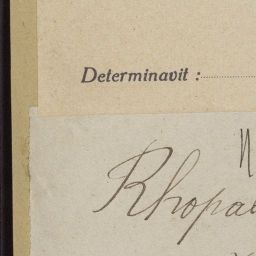 Determinavit :
Rhopal